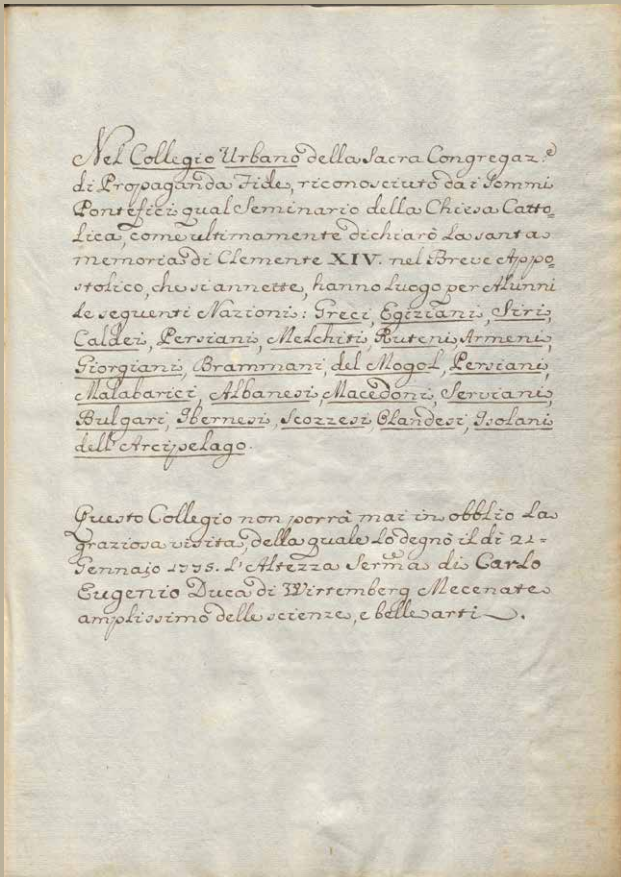 Nel Collegio Urbano della Sacra Congregaz.e
di Propaganda Fide, riconosciuto dai Sommi
Pontefici qual Seminario della Chiesa Catto=
lica, come ultimamente dichiarò la santa
memoria di Clemente XIV. nel Breve Appo=
stolico, che si annette, hanno luogo per Alunni
le seguenti Nazioni: Greci, Egiziani, Siri,
Caldei, Persiani, Melchiti, Ruteni, Armeni,
Giorgiani, Brammani, del Mogol, Persiani,
Malabarici, Albanesi, Macedoni, Serviani,
Bulgari, Ibernesi, Scozzesi, Olandesi, Isolani
dell'Arcipelago.
Questo Collegio non porrà mai in obblio la
graziosa visita, della quale lo degnò il di 21=
Gennajo 1775. l'Altezza Serma di Carlo
Eugenio Duca di Wirtemberg Mecenate
amplissimo delle scienze, e belle arti.